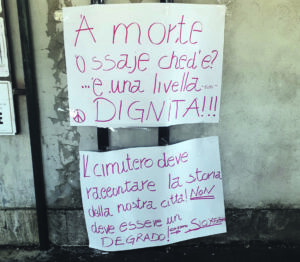 A morte
'O ssaje ched'è?
...è una livella.....
DIGNITA!!!
Il cimitero deve
raccontare la storia
della nostra città! NON
deve essere un
DEGRADO!